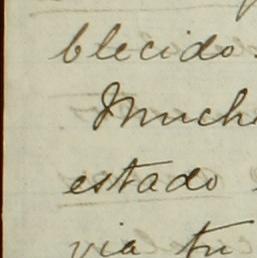 blecido.
Much
estado
via tu